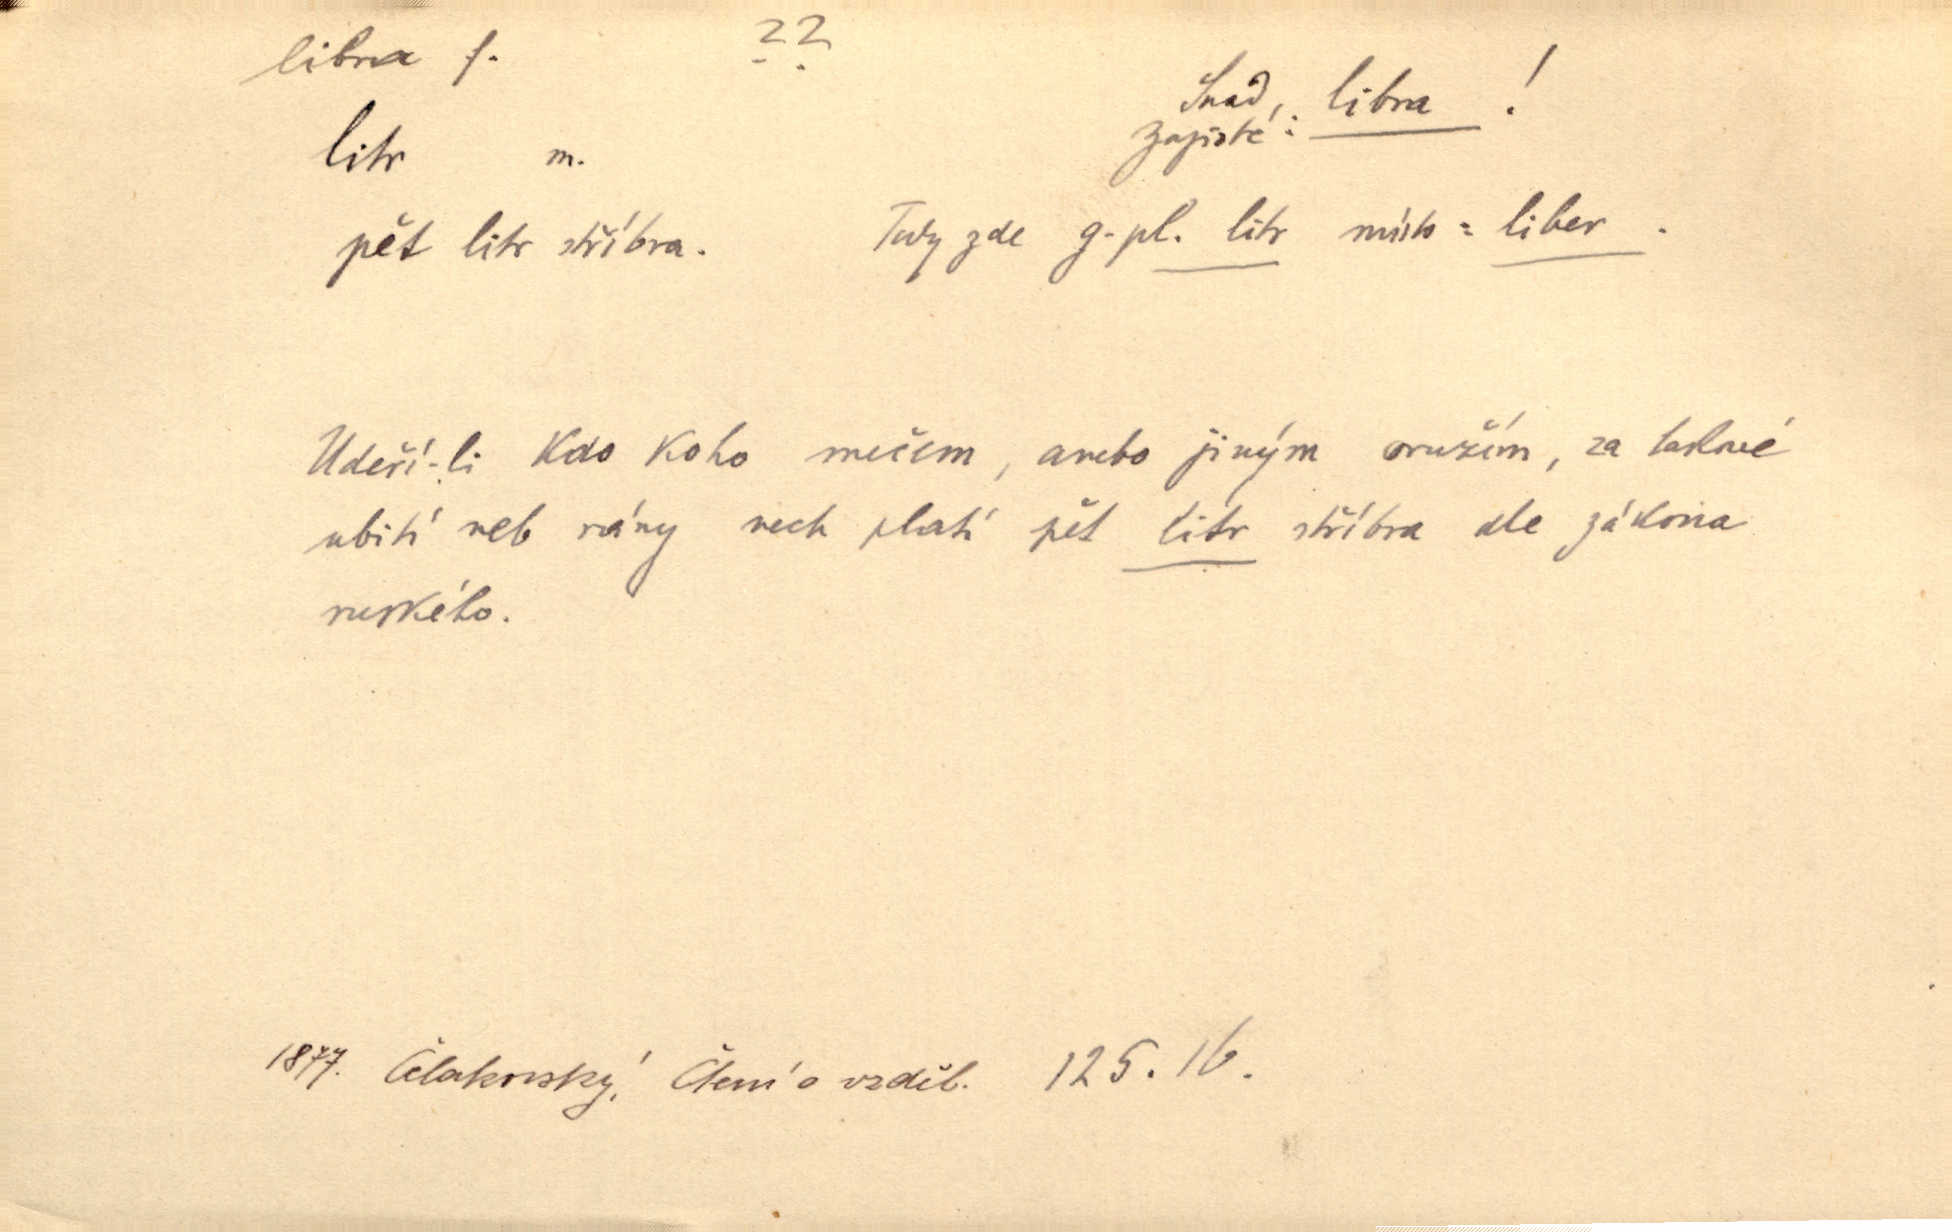 libra f. ??
Snad,
zajisté: libra !
litr m.
pět litr stříbra. Tedy zde g. pl. litr místo = liber.
Udeří-li kdo koho mečem, anebo jiným oružím, za takové
ubití neb rány nech platí pět litr stříbra dle zákona
ruského.
1877. Čelakovský, Čtení o vzděl. 125. 16.